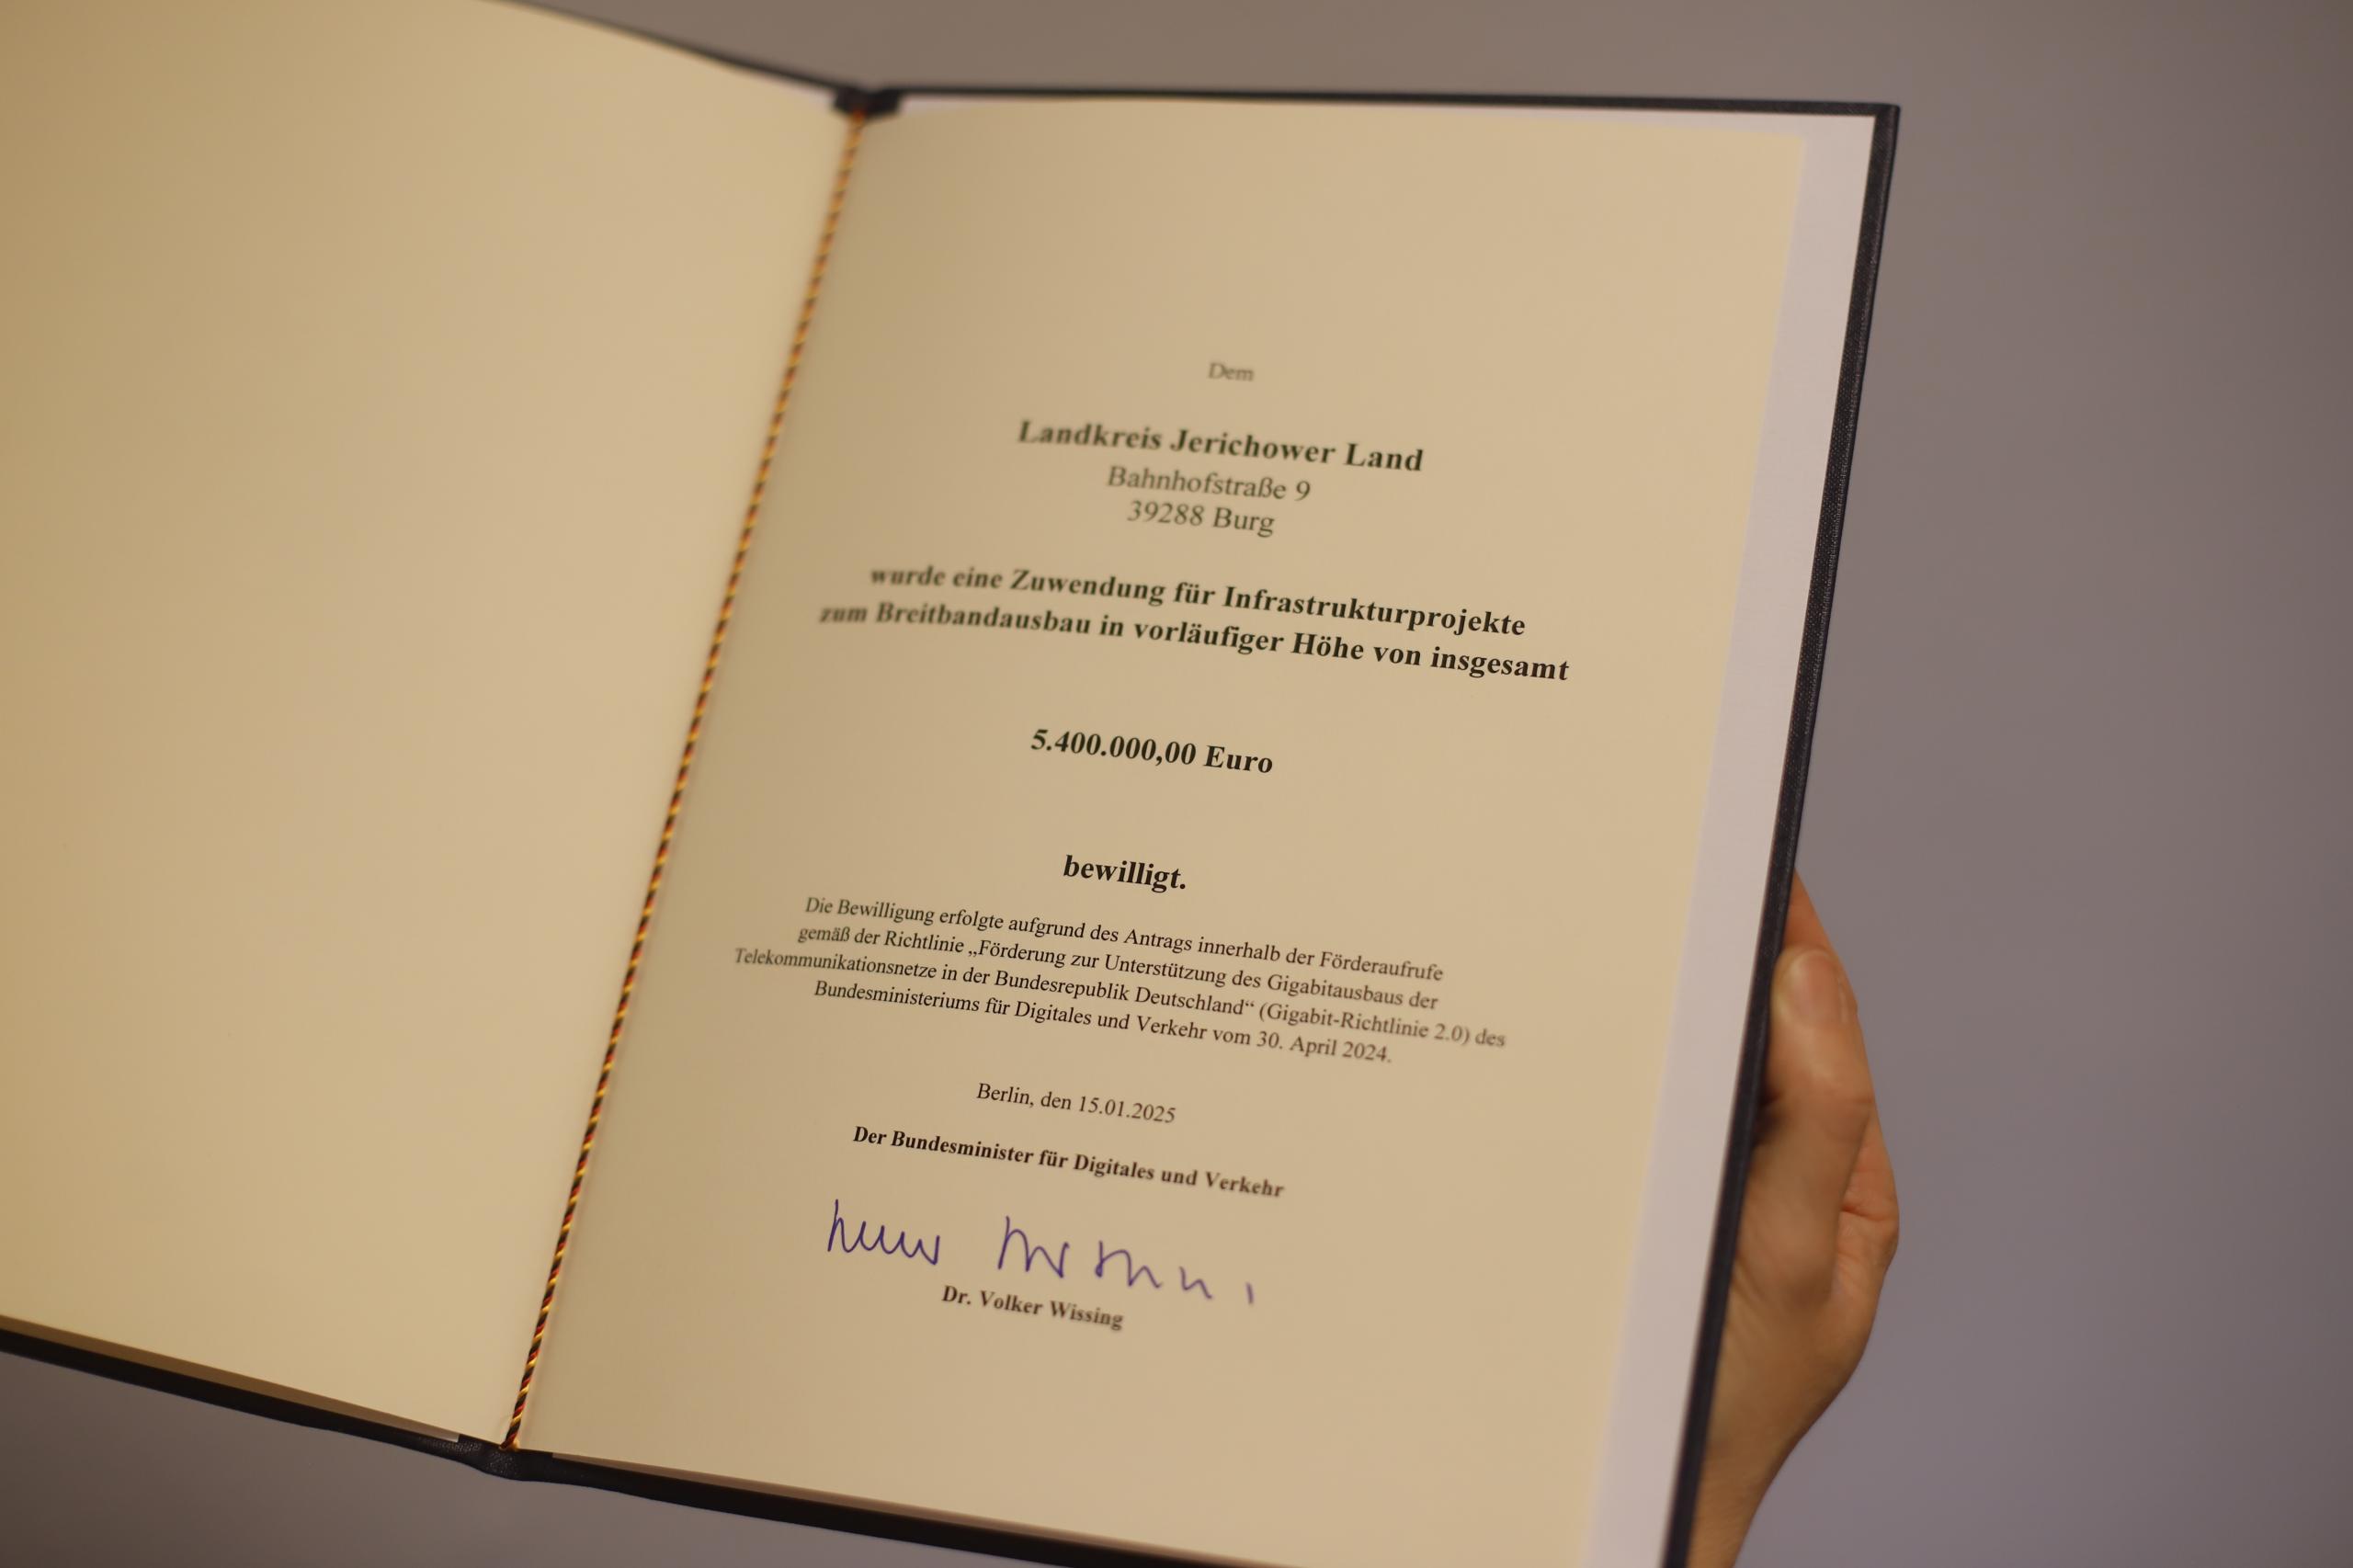 Dem
Landkreis Jerichower Land
Bahnhofstraße 9
39288 Burg
wurde eine Zuwendung für Infrastrukturprojekte
zum Breitbandausbau in vorläufiger Höhe von insgesamt
5.400.000,00 Euro
bewilligt.
Die Bewilligung erfolgte aufgrund des Antrags innerhalb der Förderaufrufe
gemäß der Richtlinie „Förderung zur Unterstützung des Gigabitausbaus der
Telekommunikationsnetze in der Bundesrepublik Deutschland“ (Gigabit-Richtlinie 2.0) des
Bundesministeriums für Digitales und Verkehr vom 30. April 2024.
Berlin, den 15.01.2025
Der Bundesminister für Digitales und Verkehr
Dr. Volker Wissing